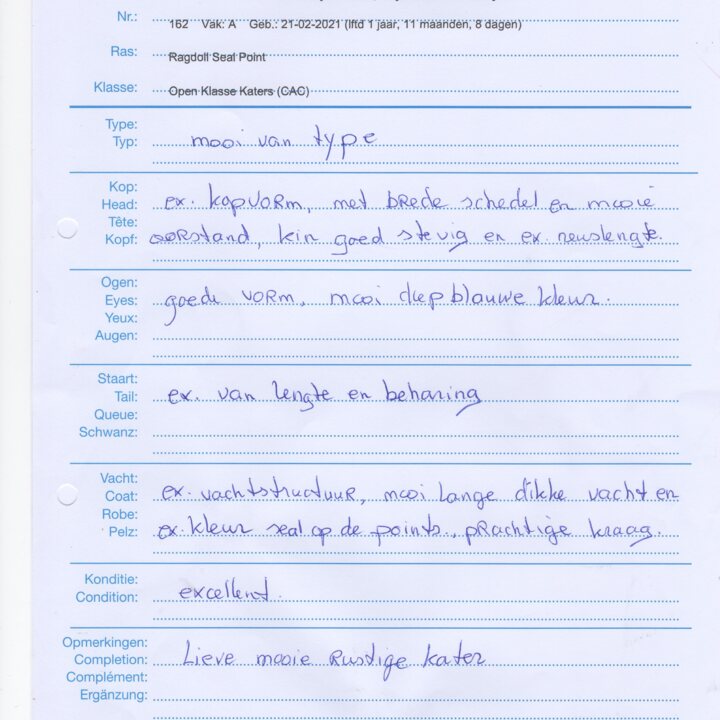 Nr.: 162 Vak: A Geb.: 21-02-2021 (lftd 1 jaar, 11 maanden, 8 dagen)
Ras: Ragdoll Seal Point
Klasse: Open Klasse Katers (CAC)
Type:
Typ: mooi van type
Kop:
Head: ex. kopvorm, met brede schedel en mooie
Tête:
Kopf: oorstand, kin goed stevig en ex. neuslengte.
Ogen:
Eyes: goede vorm, mooi diepblauwe kleur.
Yeux:
Augen:
Staart:
Tail: ex. van lengte en beharing
Queue:
Schwanz:
Vacht:
Coat: ex. vachtstructuur, mooi lange dikke vacht en
Robe:
Pelz: ex. kleur seal op de points., prachtige kraag.
Konditie:
Condition: excellent.
Opmerkingen:
Completion: Lieve mooie rustige kater
Complément:
Ergänzung: